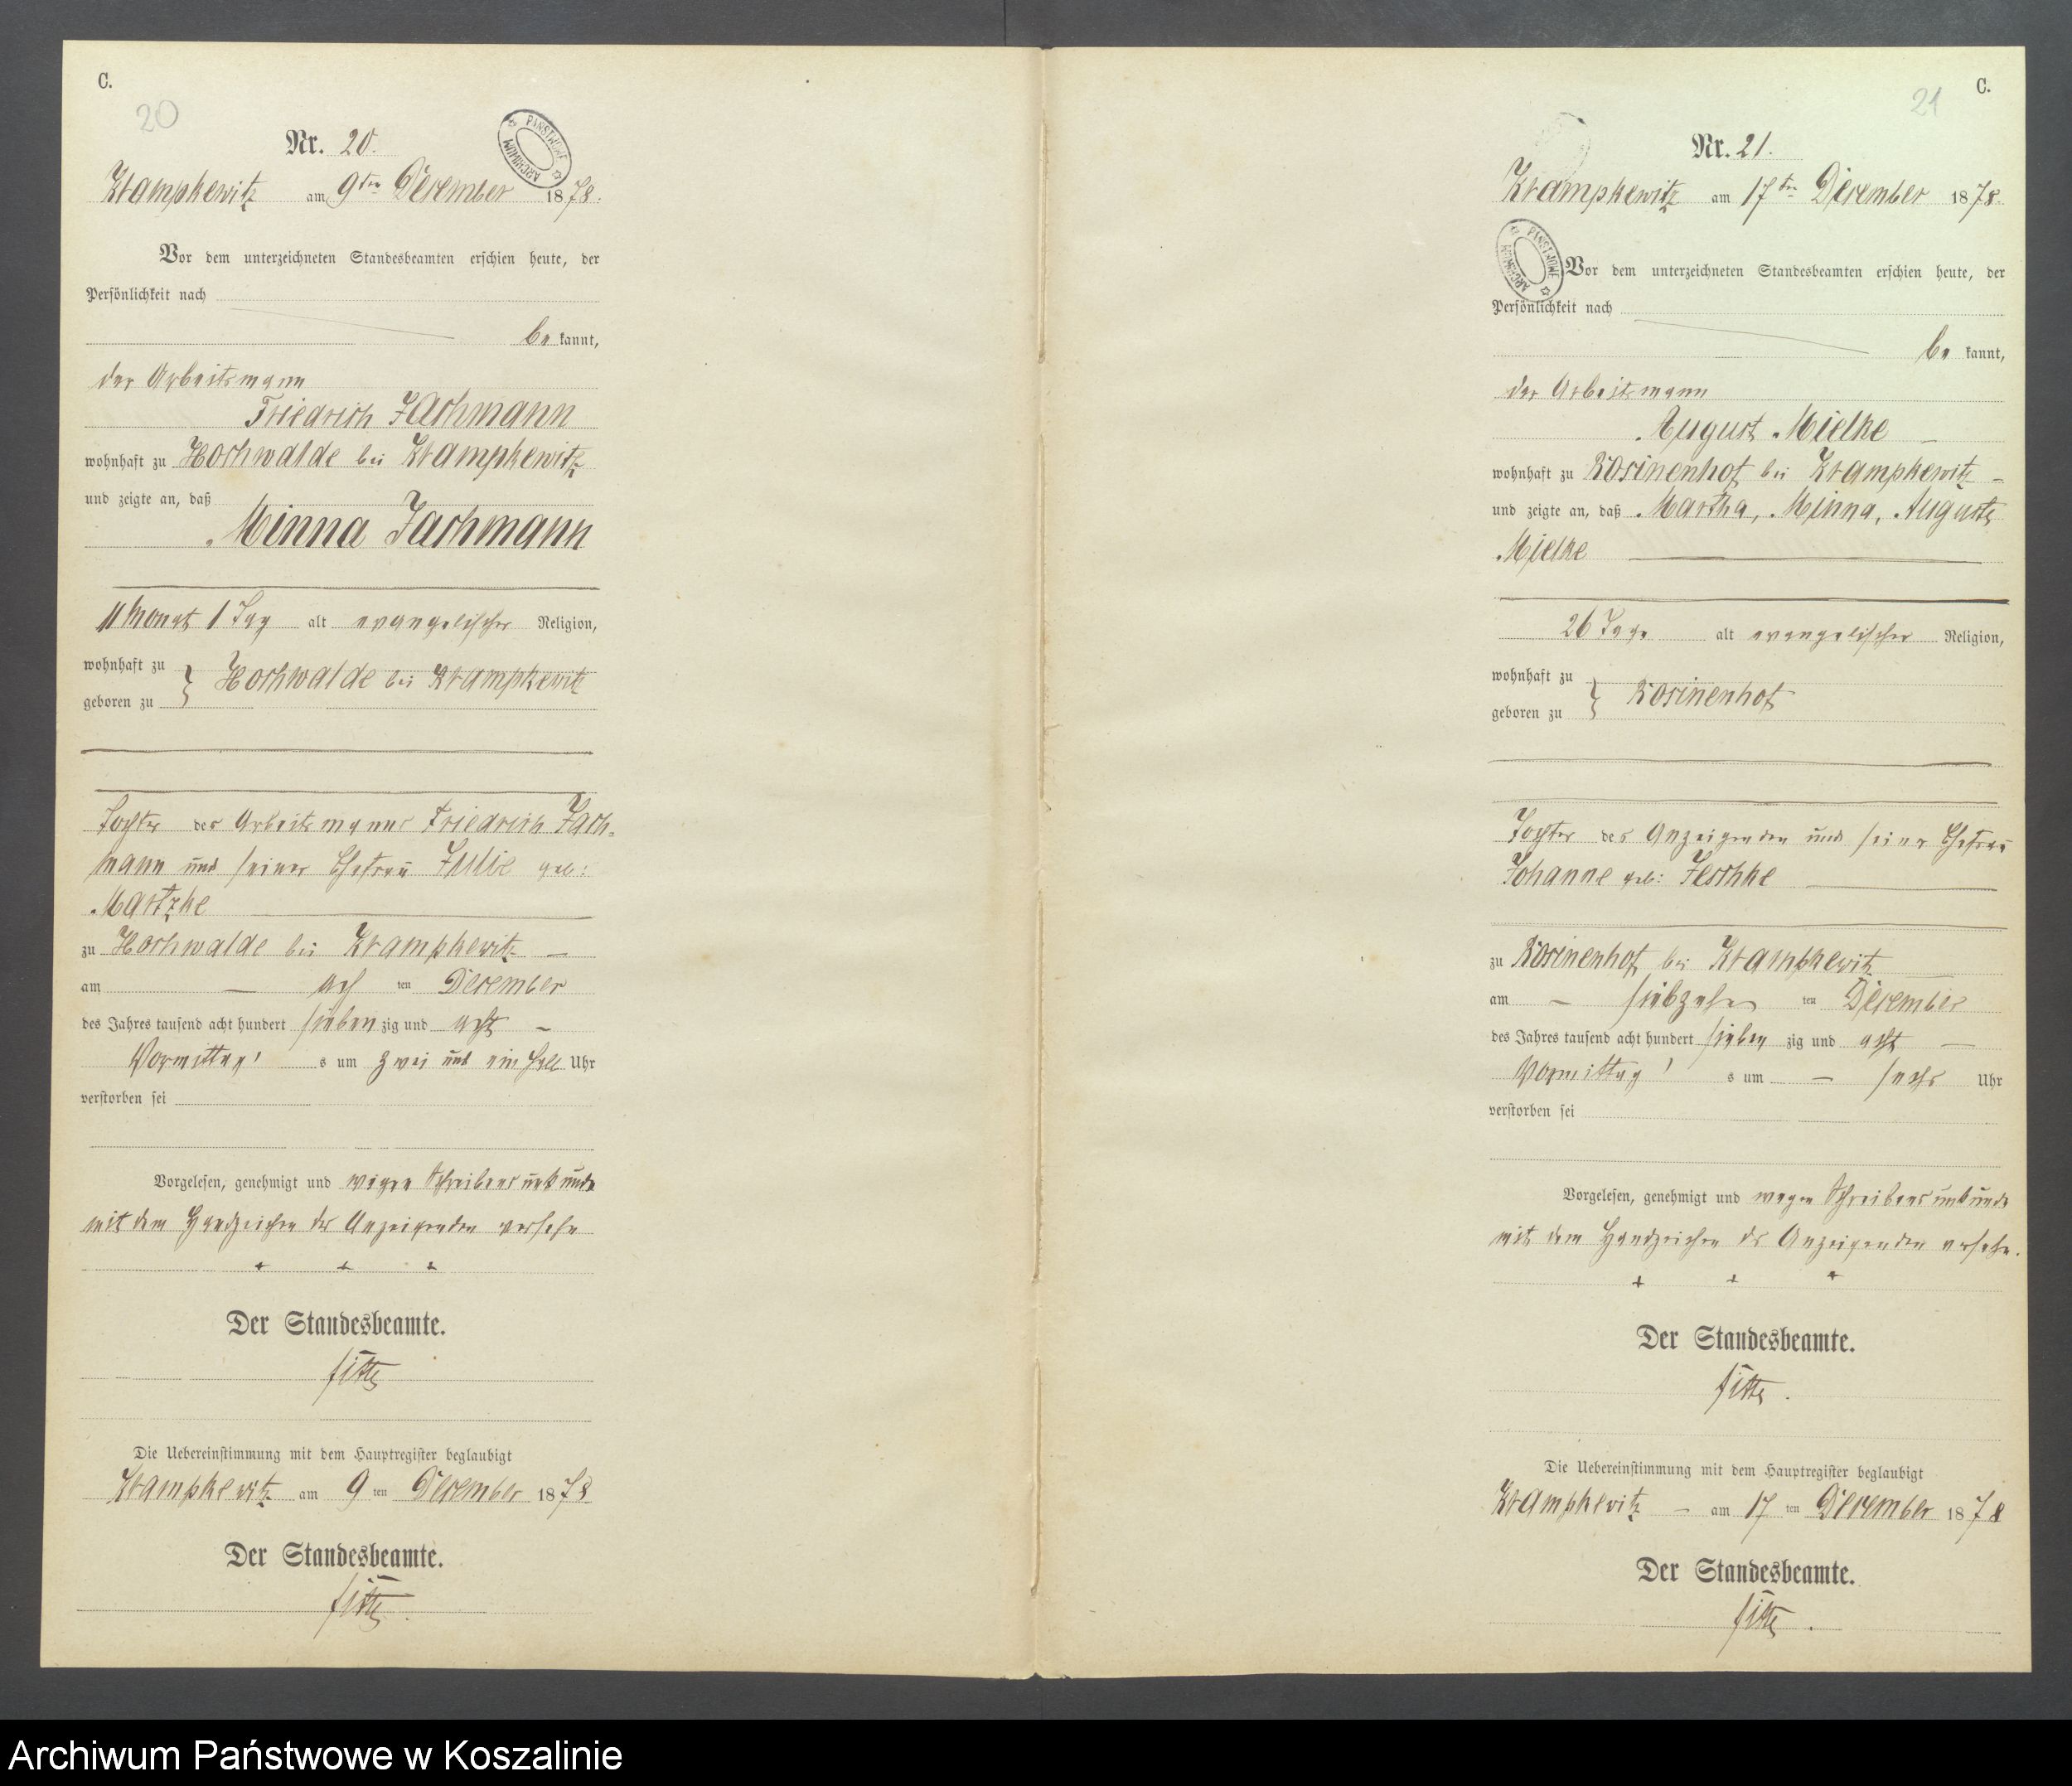 C.
20
Nr. 20.
Krampkewitz am 9ten December 1878.
Vor dem unterzeichneten Standesbeamten erschien heute, der
Persönlichkeit nach
be kannt,
der Arbeitsmann
Friedrich Jachmann
wohnhaft zu Hochwalde bei Krampkewitz
und zeigte an, daß
Minna Jachmann
11 Monat 1 Tag alt evangelischer Religion,
wohnhaft zu
geboren zu } Hochwalde bei Krampkewitz
Tochter des Arbeitsmannes Friedrich Jach-
mann und seiner Ehefrau Julie geb:
Martzke
zu Hochwalde bei Krampkewitz –
am – ach ten December
des Jahres tausend acht hundert sieben zig und acht –
Vormittag s um zwei und ein halb Uhr
verstorben sei
Vorgelesen, genehmigt und wegen Schreibensunkunde
mit dem Handzeichen des Anzeigenden versehn
+ + +
Der Standesbeamte.
Die Uebereinstimmung mit dem Hauptregister beglaubigt
Krampkewitz am 9 ten December 1878
Der Standesbeamte.
C.
21
Nr. 21.
Krampkewitz am 17ten December 1878.
ARCHIWUM PAŃSTWOWE
Vor dem unterzeichneten Standesbeamten erschien heute, der
Persönlichkeit nach
be kannt,
der Arbeitsmann
August Mielke –
wohnhaft zu Rosinenhof bei Krampkewitz –
und zeigte an, daß Martha, Minna, Auguste
Mielke
26 Tage alt evangelischer Religion,
wohnhaft zu
geboren zu } Rosinenhof
Tochter des Anzeigenden und seiner Ehefrau
Johanne geb: Jeschke
zu Rosinenhof bei Krampkewitz
am – siebzehn ten December
des Jahres tausend acht hundert sieben zig und acht –
Vormittag s um – sechs Uhr
verstorben sei
Vorgelesen, genehmigt und wegen Schreibensunkunde
mit dem Handzeichen des Anzeigenden versehn.
+ + +
Der Standesbeamte.
Die Uebereinstimmung mit dem Hauptregister beglaubigt
Krampkewitz – am 17 ten December 1878
Der Standesbeamte.
Archiwum Państwowe w Koszalinie